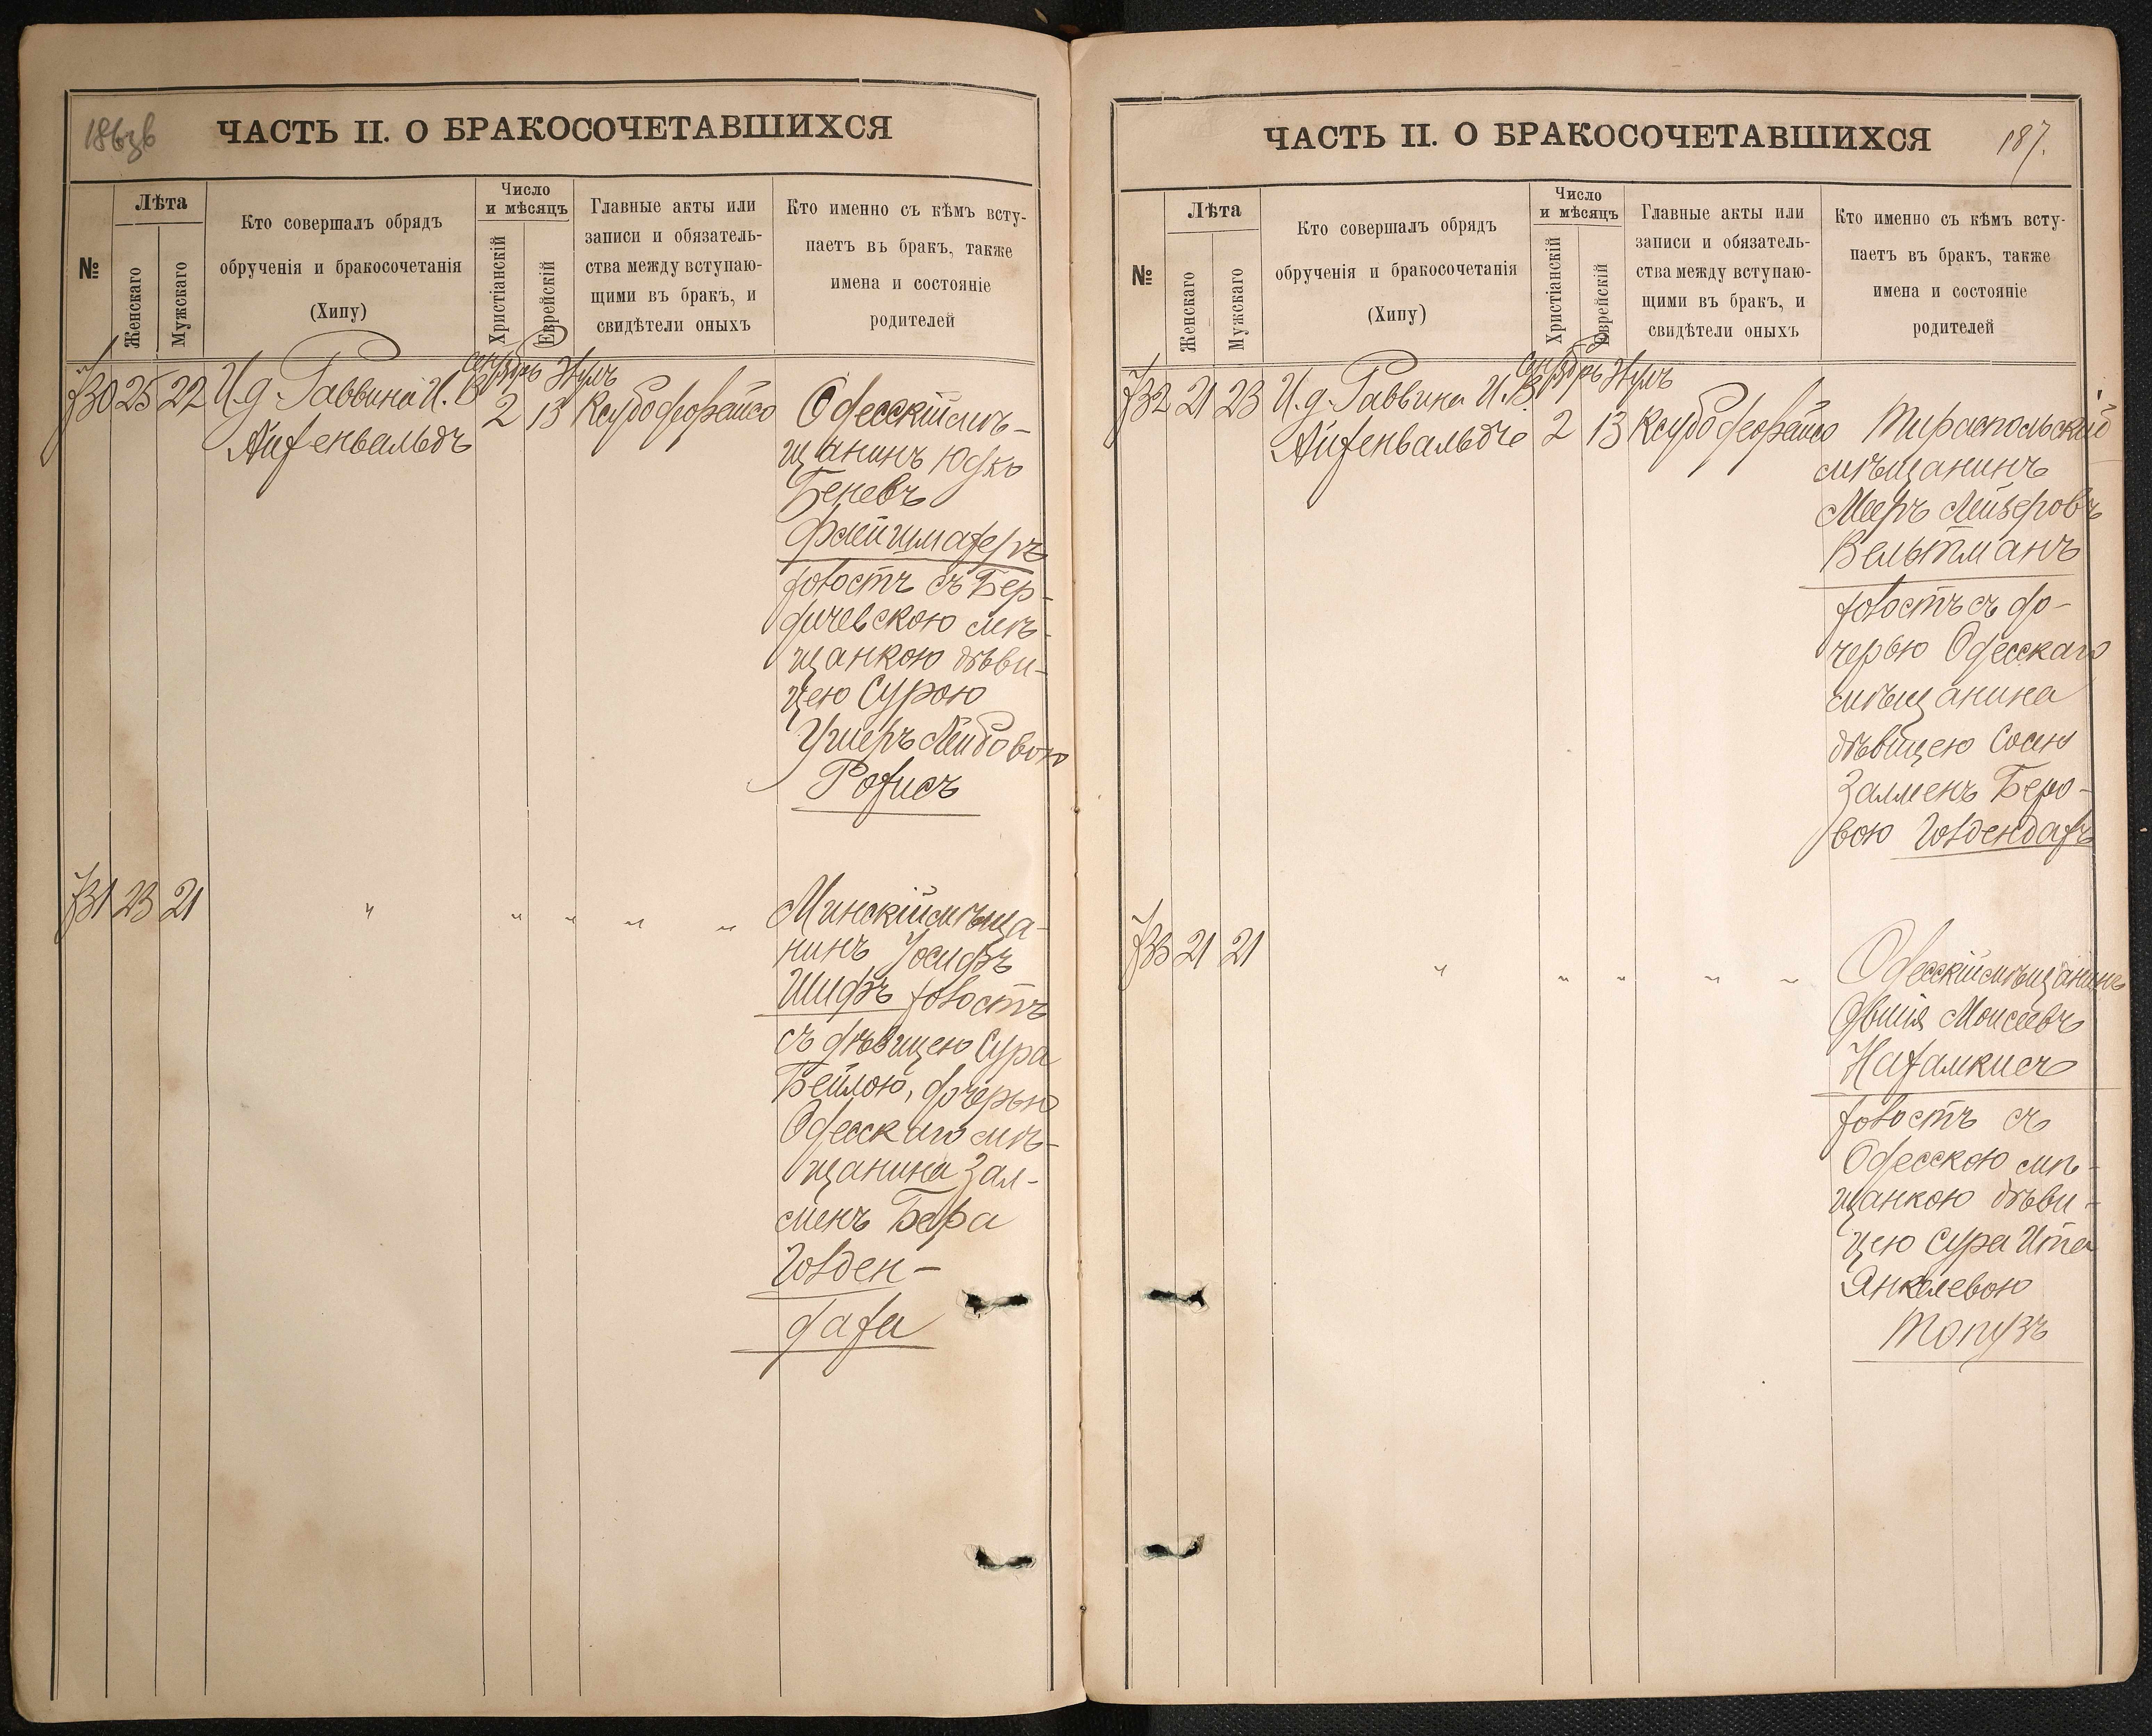 ЧАСТЬ II. О БРАКОСОЧЕТАВШИХСЯ
№
Лѣта
Женскаго
Мужскаго
Кто совершалъ обрядъ
обрученія и бракосочетанія
(Хипу)
Число
и мѣсяцъ
Христіанскій
Еврейскій
Главные акты или
записи и обязатель-
ства между вступаю-
щими въ бракъ, и
свидѣтели оныхъ
Кто именно съ кѣмъ всту-
паетъ въ бракъ, также
имена и состояніе
родителей
730 25 22 И.д. Раввина И. В.
Айзенвальдъ
2 13
Одесскій мѣ-
щанинъ Юдко
Беневъ
холостъ съ Бер-
дичевскою мѣ-
щанкою дѣви-
цею Сурою
Ушеръ Лейбовою
Розисъ
731 23 21 " " " " "
Минскій мѣща-
нинъ Іосифъ
Шифъ холостъ
съ дѣвицею Сура
Бейлою, дочерью
Одесскаго мѣ-
щанина Зал-
менъ Бера
Голден-
даха
ЧАСТЬ II. О БРАКОСОЧЕТАВШИХСЯ
187.
№
Лѣта
Женскаго
Мужскаго
Кто совершалъ обрядъ
обрученія и бракосочетанія
(Хипу)
Число
и мѣсяцъ
Христіанскій
Еврейскій
Главные акты или
записи и обязатель-
ства между вступаю-
щими въ бракъ, и
свидѣтели оныхъ
Кто именно съ кѣмъ всту-
паетъ въ бракъ, также
имена и состояніе
родителей
732 21 23 И.д. Раввина И. В.
Айзенвальдъ
2 13
Тираспольскій
мѣщанинъ
Мееръ Лейзеровъ
Вельтманъ
холостъ съ до-
черью Одесскаго
мѣщанина
дѣвицею Сосею
Залменъ Беро-
вою Голдендахъ
733 21 21 " " " " "
Одесскій мѣщанинъ
Овшія Моисеевъ
холостъ съ
Одесскою мѣ-
щанкою дѣви-
цею Сура Ита
Янкелевою
Топузъ